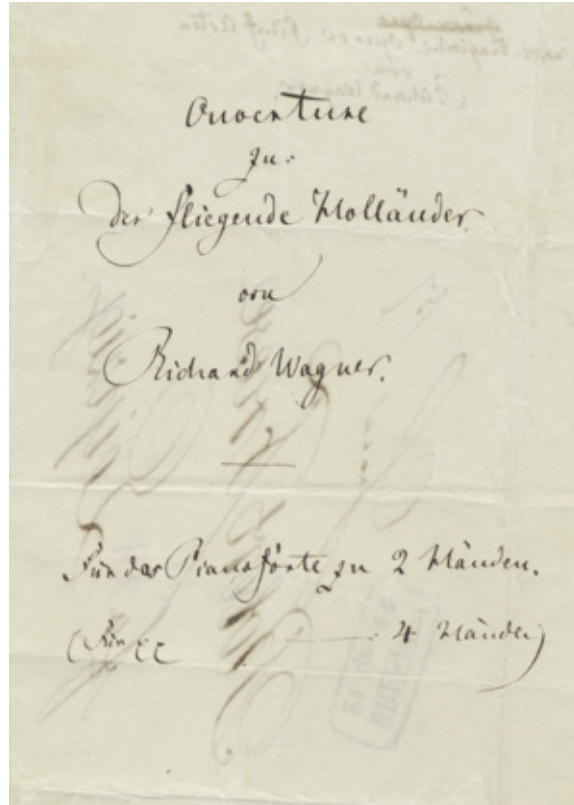 Ouverture
zu:
der fliegende Holländer.
von
Richard Wagner.
Für das Pianoforte zu 2 Händen.
(Für 4 Hände)